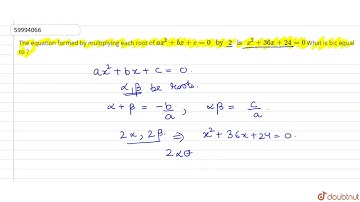 59994066
The equation formed by multiplying each root of ax² + bx + c = 0 by 2 is x² + 36x + 24 = 0 What is b:c equal
to ?
ax² + bx + c = 0.
α, β be roots.
α + β = -b/a , αβ = c/a.
2α, 2β ⇒ x² + 36x + 24 = 0.
2αθ
doubtnut